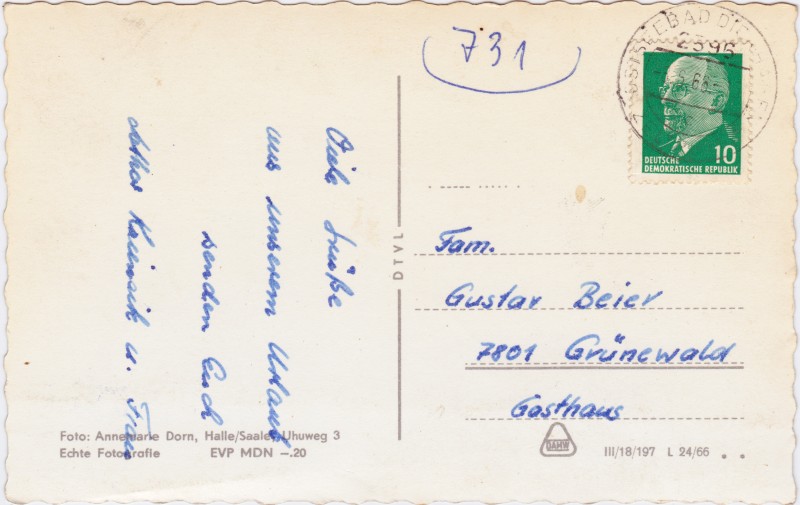 731
OSTSEEBAD
2596
66
DEUTSCHE
DEMOKRATISCHE REPUBLIK
10
Viele Grüße
aus unserem Urlaub
senden Euch
u. Frau
DTVL
Fam.
Gustav Beier
7801 Grünewald
Gasthaus
Foto: Annemarie Dorn, Halle/Saale, Uhuweg 3
Echte Fotografie EVP MDN –.20
DAMW
III/18/197 L 24/66